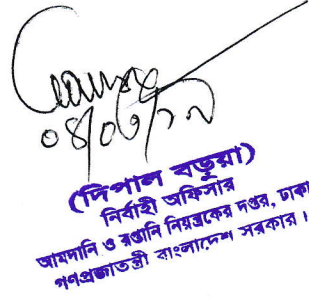 ০৪/০৩/১৭
(দিপাল বড়ুয়া)
নির্বাহী অফিসার
আমদানি ও রপ্তানি নিয়ন্ত্রকের দপ্তর, ঢাকা
গণপ্রজাতন্ত্রী বাংলাদেশ সরকার।